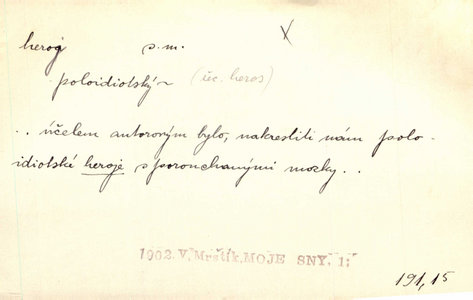 heroj s.m. X
poloidiotský ~ (řec. heros)
.. účelem autorovým bylo, nakresliti nám polo-
idiotské heroje s porouchanými mozky..
1902. V. Mrštík, MOJE SNY. 1:
191,15